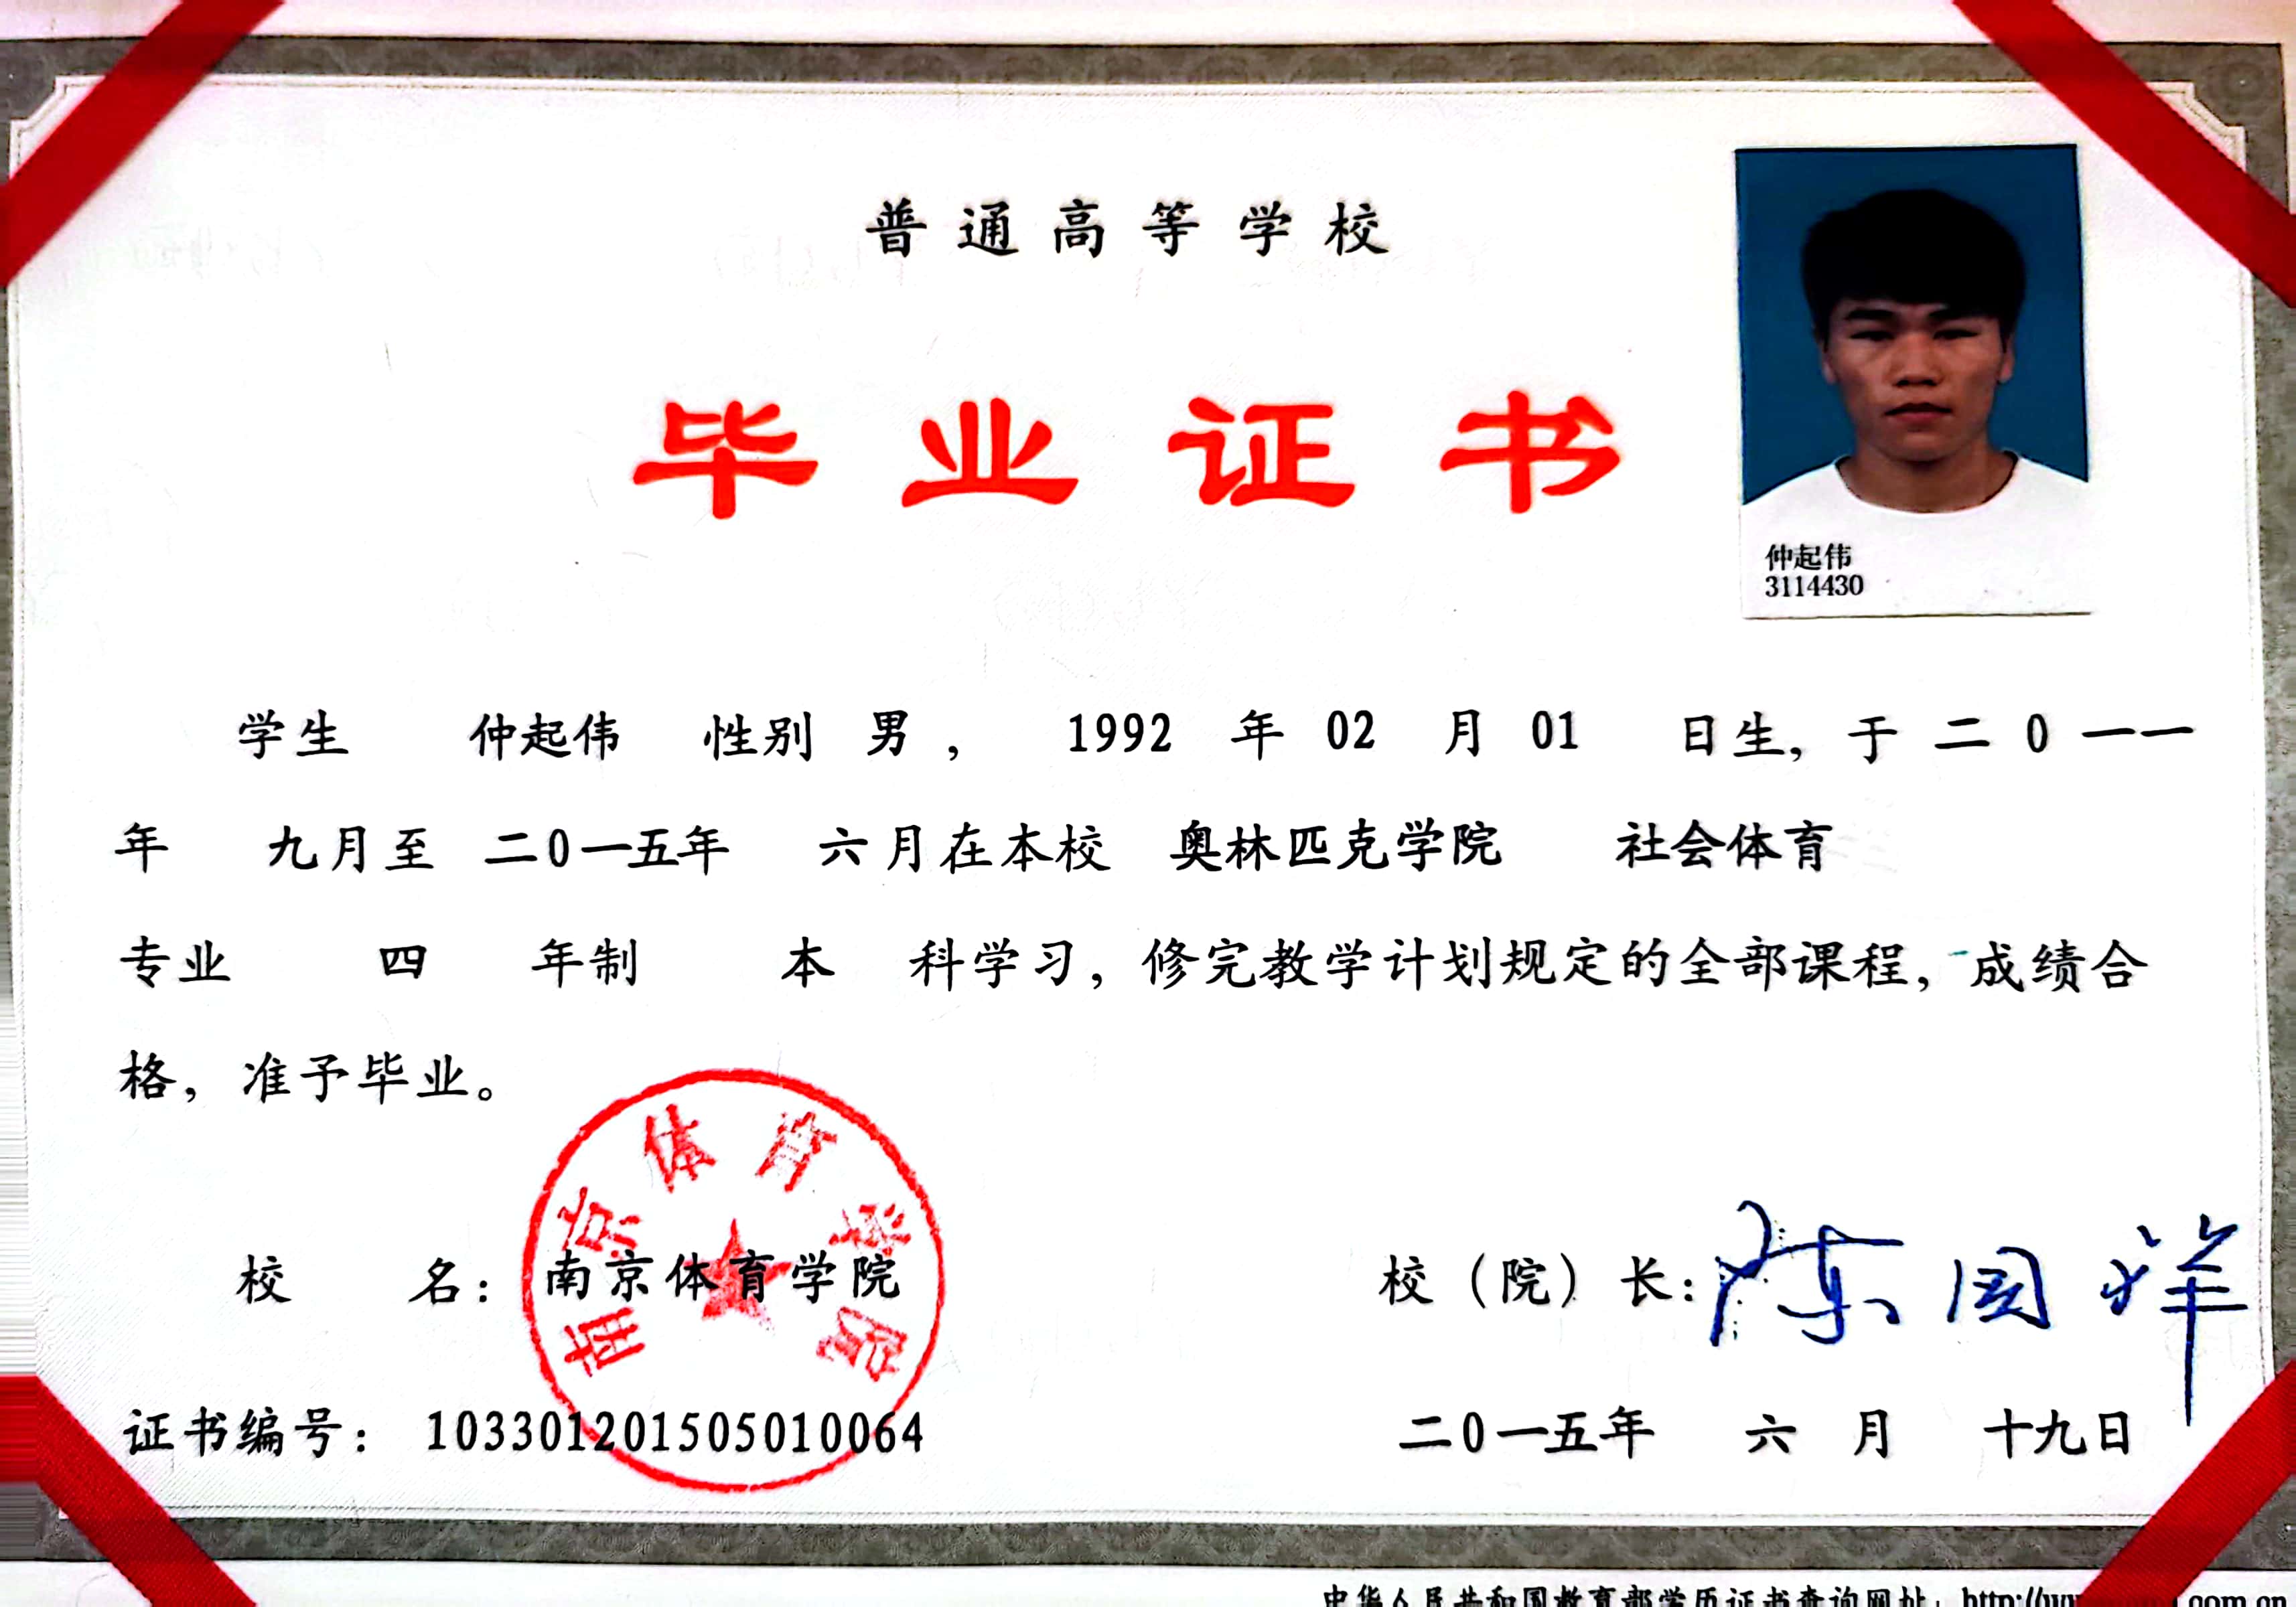 普通高等学校
毕业证书
仲起伟
3114430
学生 仲起伟 性别 男， 1992 年 02 月 01 日生，于 二 0 一一
年 九月至 二0一五年 六月在本校 奥林匹克学院 社会体育
专业 四 年制 本 科学习，修完教学计划规定的全部课程，成绩合
格，准予毕业。
南京体育学院
校 名：南京体育学院
校（院）长：陈国祥
证书编号： 103301201505010064
二0一五年 六 月 十九日
中华人民共和国教育部学历证书查询网址：http://